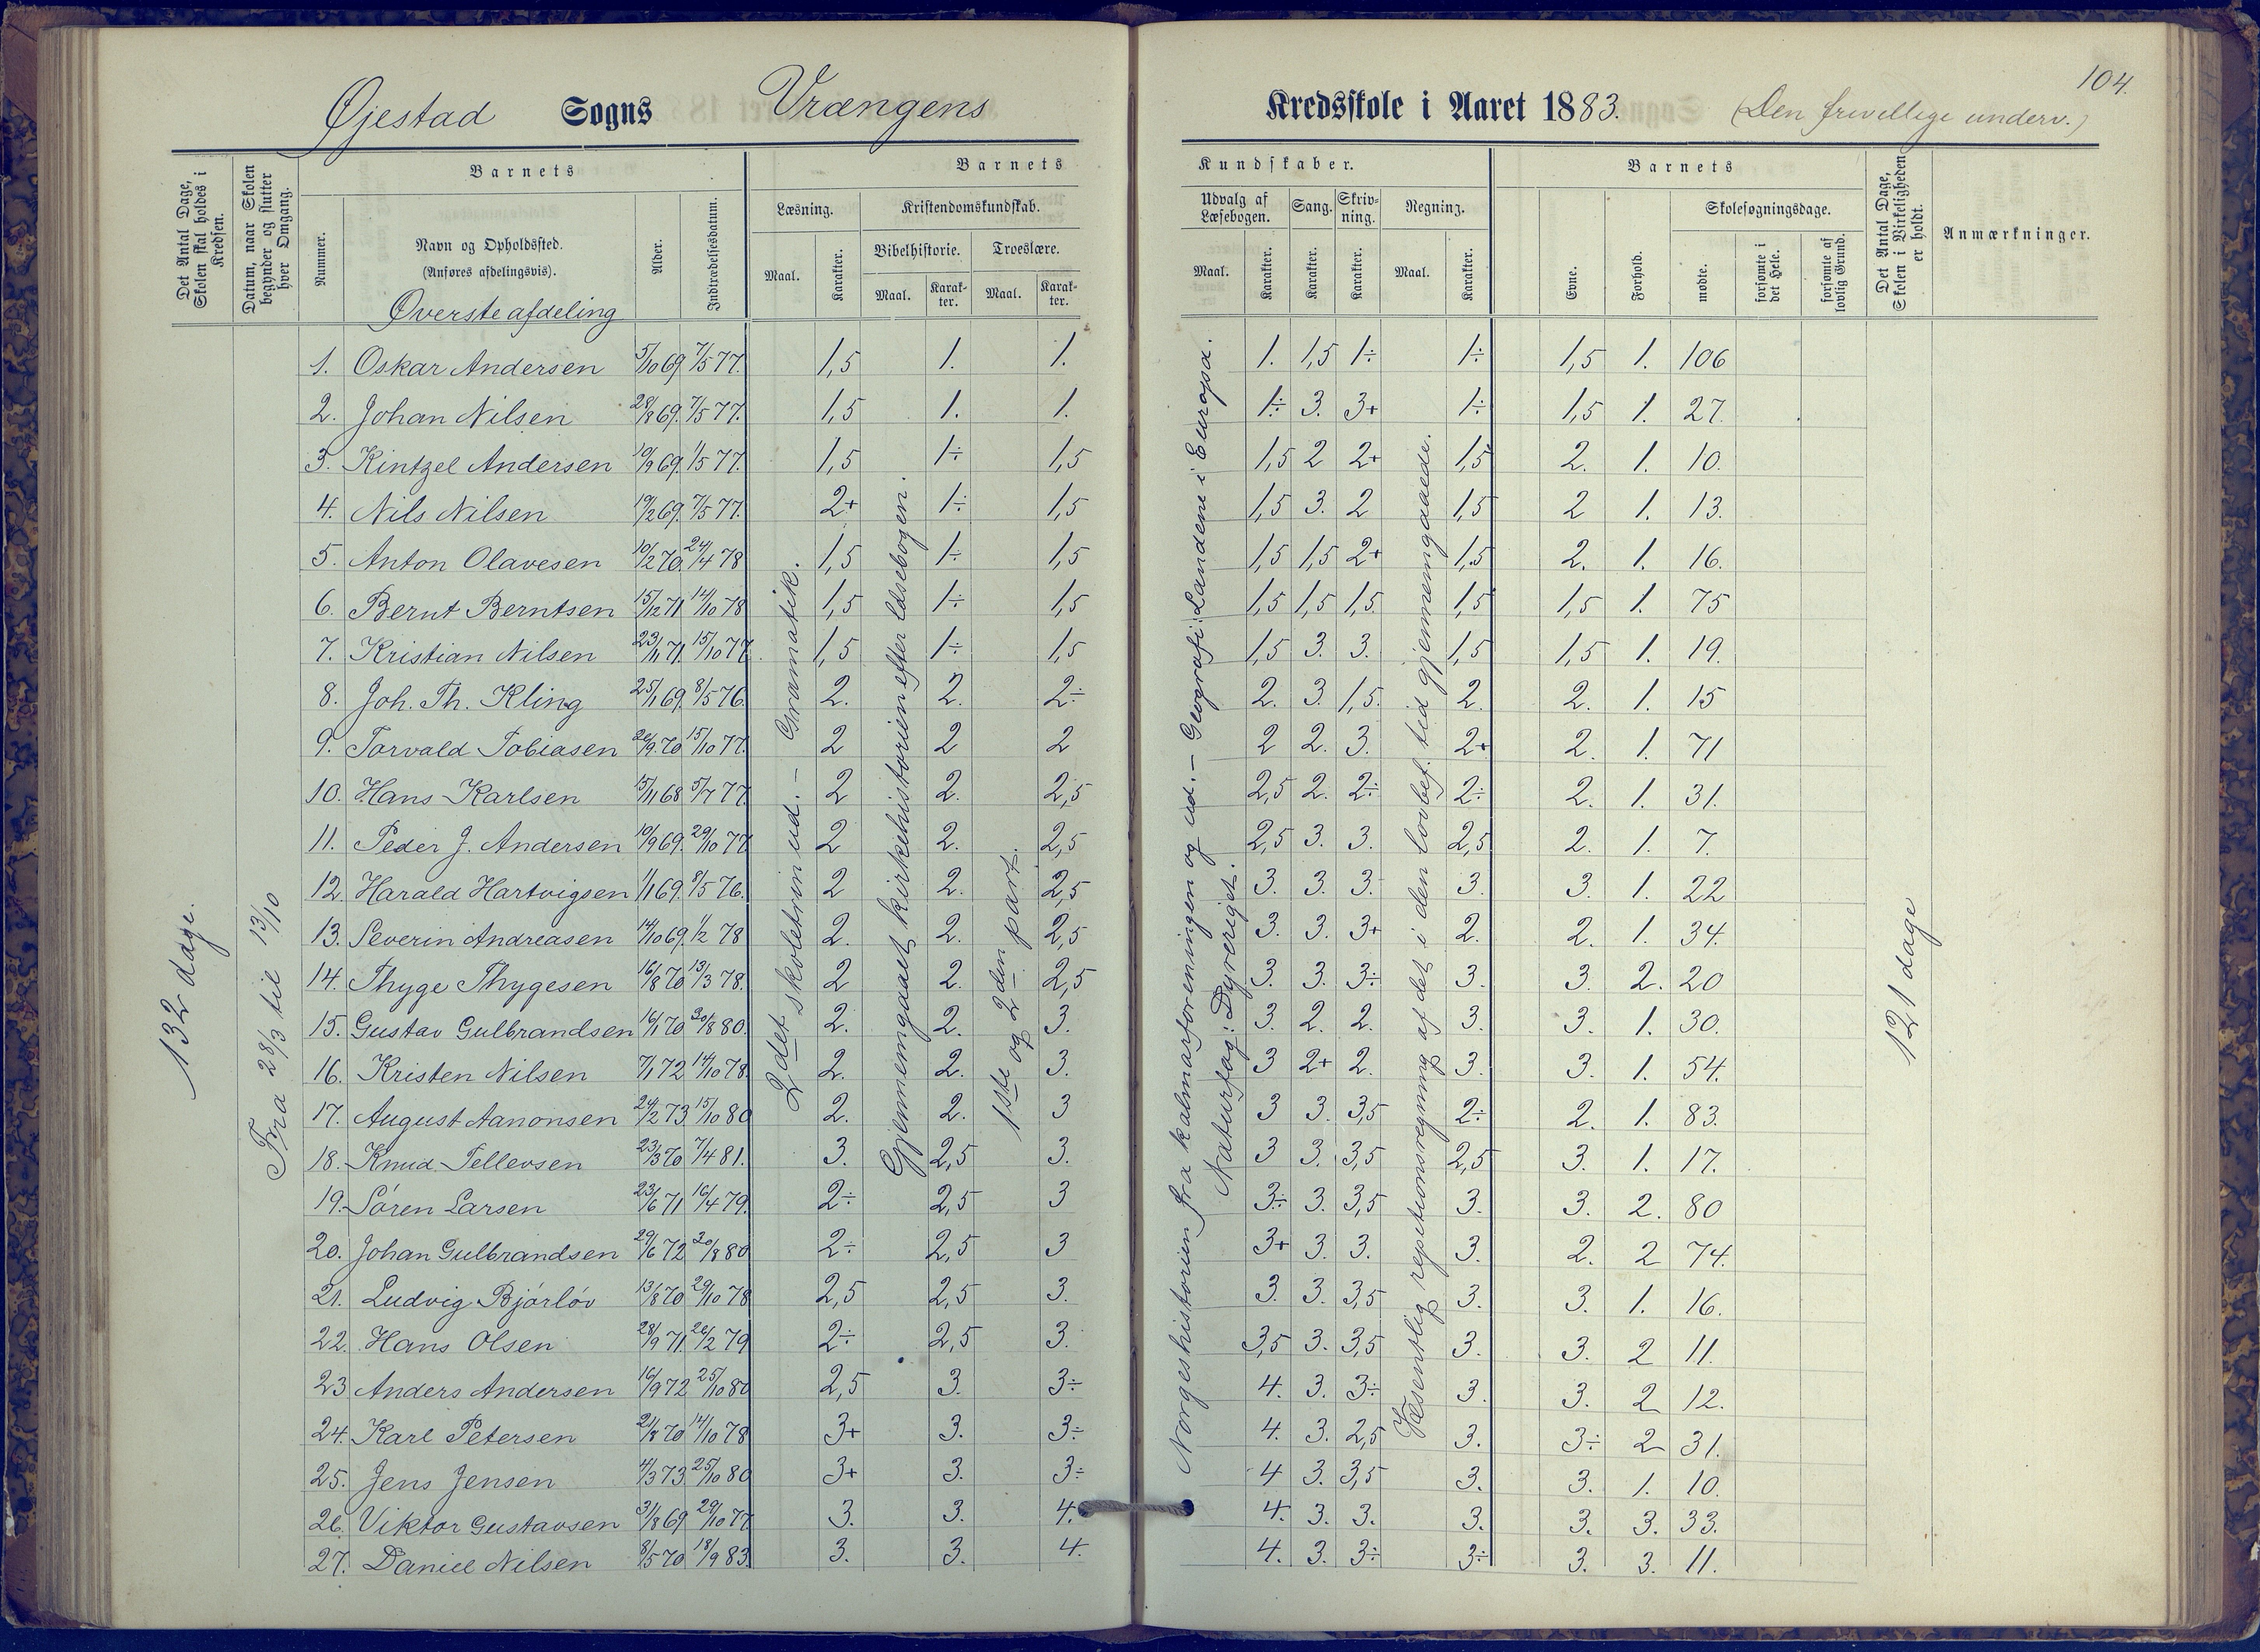 104.
Øjestad Sogns Vrængens Kredsskole i Aaret 1883. (Den frivellige underv.)
Det Antal Dage, Skolen skal holdes i Kredsen.
Datum, naar Skolen begynder og slutter hver Omgang.
Barnets
Nummer.
Navn og Opholdssted.
(Anføres afdelingsvis).
Alder.
Indtrædelsesdatum.
Barnets Kundskaber.
Læsning.
Maal.
Karakter.
Kristendomskundskab.
Bibelhistorie.
Maal.
Karakter.
Troeslære.
Maal.
Karakter.
Udvalg af Læsebogen.
Maal.
Karakter.
Sang.
Karakter.
Skrivning.
Karakter.
Regning.
Maal.
Karakter.
Barnets
Evne.
Forhold.
Skolesøgningsdage.
mødte.
forsømte i det Hele.
forsømte af lovlig Grund.
Det Antal Dage, Skolen i Virkeligheden er holdt.
Anmærkninger.
Øverste afdeling
132 dage.
Fra 28/3 til 13/10
2det skoletrin ud. – Gramatik.
Gjennemgaaet kirkehistorien efter læsebogen.
1ste og 2den part.
Norgeshistorien fra kalmarforeningen og ud. – Geografi: Landene i Europa.
Naturfag: Dyreriget.
Væsentlig repetitionsregning af det i den lovbef. tid gjennemgaaede.
121 dage
1. Oskar Andersen 5/10 69 7/5 77. 1,5 1. 1. 1. 1,5 1÷ 1÷ 1,5 1. 106
2. Johan Nilsen 28/8 69. 7/5 77. 1,5 1. 1. 1÷ 3. 3+ 1÷ 1,5 1. 27.
3. Kintzel Andersen 19/9 69. 1/5 77. 1,5 1÷ 1,5 1,5 2 2+ 1,5 2. 1. 10.
4. Nils Nilsen 19/2 69. 7/5 77. 2+ 1÷ 1,5 1,5 3. 2 1,5 2 1. 13.
5. Anton Olavesen 10/2 70. 24/4 78 1,5 1÷ 1,5 1,5 1,5 2+ 1,5 2. 1. 16.
6. Bernt Berntsen 15/12 71 14/10 78 1,5 1÷ 1,5 1,5 1,5 1,5 1,5 1,5 1. 75
7. Kristian Nilsen 23/11 71. 15/10 77. 1,5 1÷ 1,5 1,5 3. 3. 1,5 1,5 1. 19.
8. Joh. Th. Kling 25/1 69. 8/5 76. 2. 2. 2÷ 2. 3. 1,5. 2. 2. 1. 15
9. Torvald Tobiasen 26/9 70 15/10 77. 2 2 2 2 2. 3. 2+ 2. 1. 71
10. Hans Karlsen 15/11 68 5/7 77. 2 2. 2,5 2,5 2. 2÷ 2÷ 2. 1. 31.
11. Peder J. Andersen 10/9 69. 29/10 77 2 2. 2,5 2,5 3. 3. 2,5 2. 1. 7.
12. Harald Hartvigsen 1/1 69. 9/5 76. 2 2. 2,5 3. 3. 3. 3. 3. 1. 22
13. Severin Andreasen 14/10 69. 1/2 78 2. 2. 2,5 3. 3. 3+ 2. 2. 1. 34.
14. Thyge Thygesen 16/8 70 13/3 78. 2 2. 2,5 3. 3. 3÷ 3. 3. 2. 20
15. Gustav Gulbrandsen 16/1 70 30/8 80. 2. 2. 3. 3. 2. 2. 3. 3. 1. 30.
16. Kristen Nilsen 7/1 72 14/10 78. 2. 2. 3. 3 2+ 2. 3. 3. 1. 54.
17. August Aanonsen 24/2 73 15/10 80 2. 2. 3 3 3. 3,5 2÷ 2. 1. 83.
18. Knud Tellevsen 23/3 70 7/4 81. 3. 2,5 3. 3 3. 3,5 2,5 3. 1. 17.
19. Søren Larsen 23/6 71 16/4 79. 2÷ 2,5 3 3÷ 3. 3,5 3. 3. 2. 80
20. Johan Gulbrandsen 29/6 72 30/8 80 2÷ 2,5 3 3+ 3. 3. 3. 2. 2 74.
21. Ludvig Bjørløv 13/8 70 29/10 78 2,5 2,5 3. 3. 3. 3,5 3. 3. 1. 16.
22. Hans Olsen 28/9 71. 26/2 79 2÷ 2,5 3. 3,5 3. 3,5 3. 3. 2 11.
23 Anders Andersen 16/9 72 25/10 80 2,5 3. 3÷ 4. 3. 3÷ 3. 3. 2 12.
24. Karl Petersen 21/8 70 14/10 78 3+ 3. 3÷ 4. 3. 2,5 3. 3÷ 2 31.
25. Jens Jensen 4/3 73 25/10 80 3+ 3. 3÷ 4 3. 3,5 3. 3. 1. 10.
26. Viktor Gustavsen 31/8 69 29/10 77 3. 3. 4. 4. 3. 3. 3. 3. 3. 33.
27. Daniel Nilsen 8/5 70 18/9 83. 3. 3. 4. 4. 3. 3÷ 3÷ 3. 3. 11.